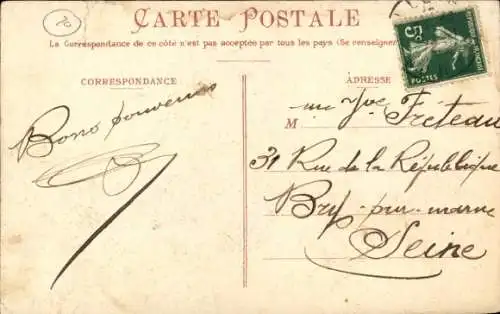 CARTE POSTALE
La Correspondance de ce côté n'est pas acceptée par tous les pays (Se renseigner
CORRESPONDANCE
ADRESSE
Bons souvenirs
M Yve Fréteau
31 Rue de la République
Bry-sur-marne
Seine
5c
POSTES